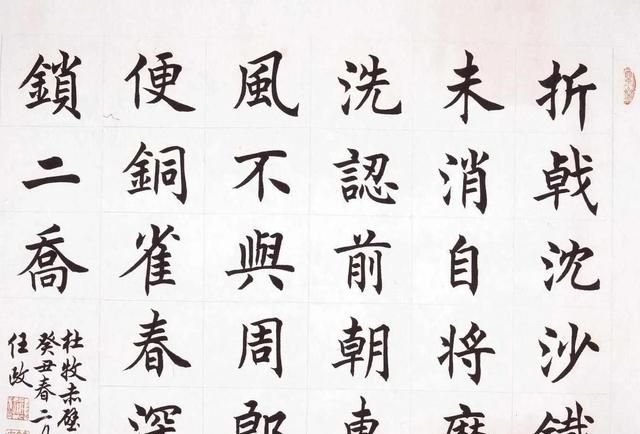 折戟沈沙鐵
未消自將磨
洗認前朝東
風不與周郎
便銅雀春深
鎖二喬
杜牧赤壁
癸丑春二
任政